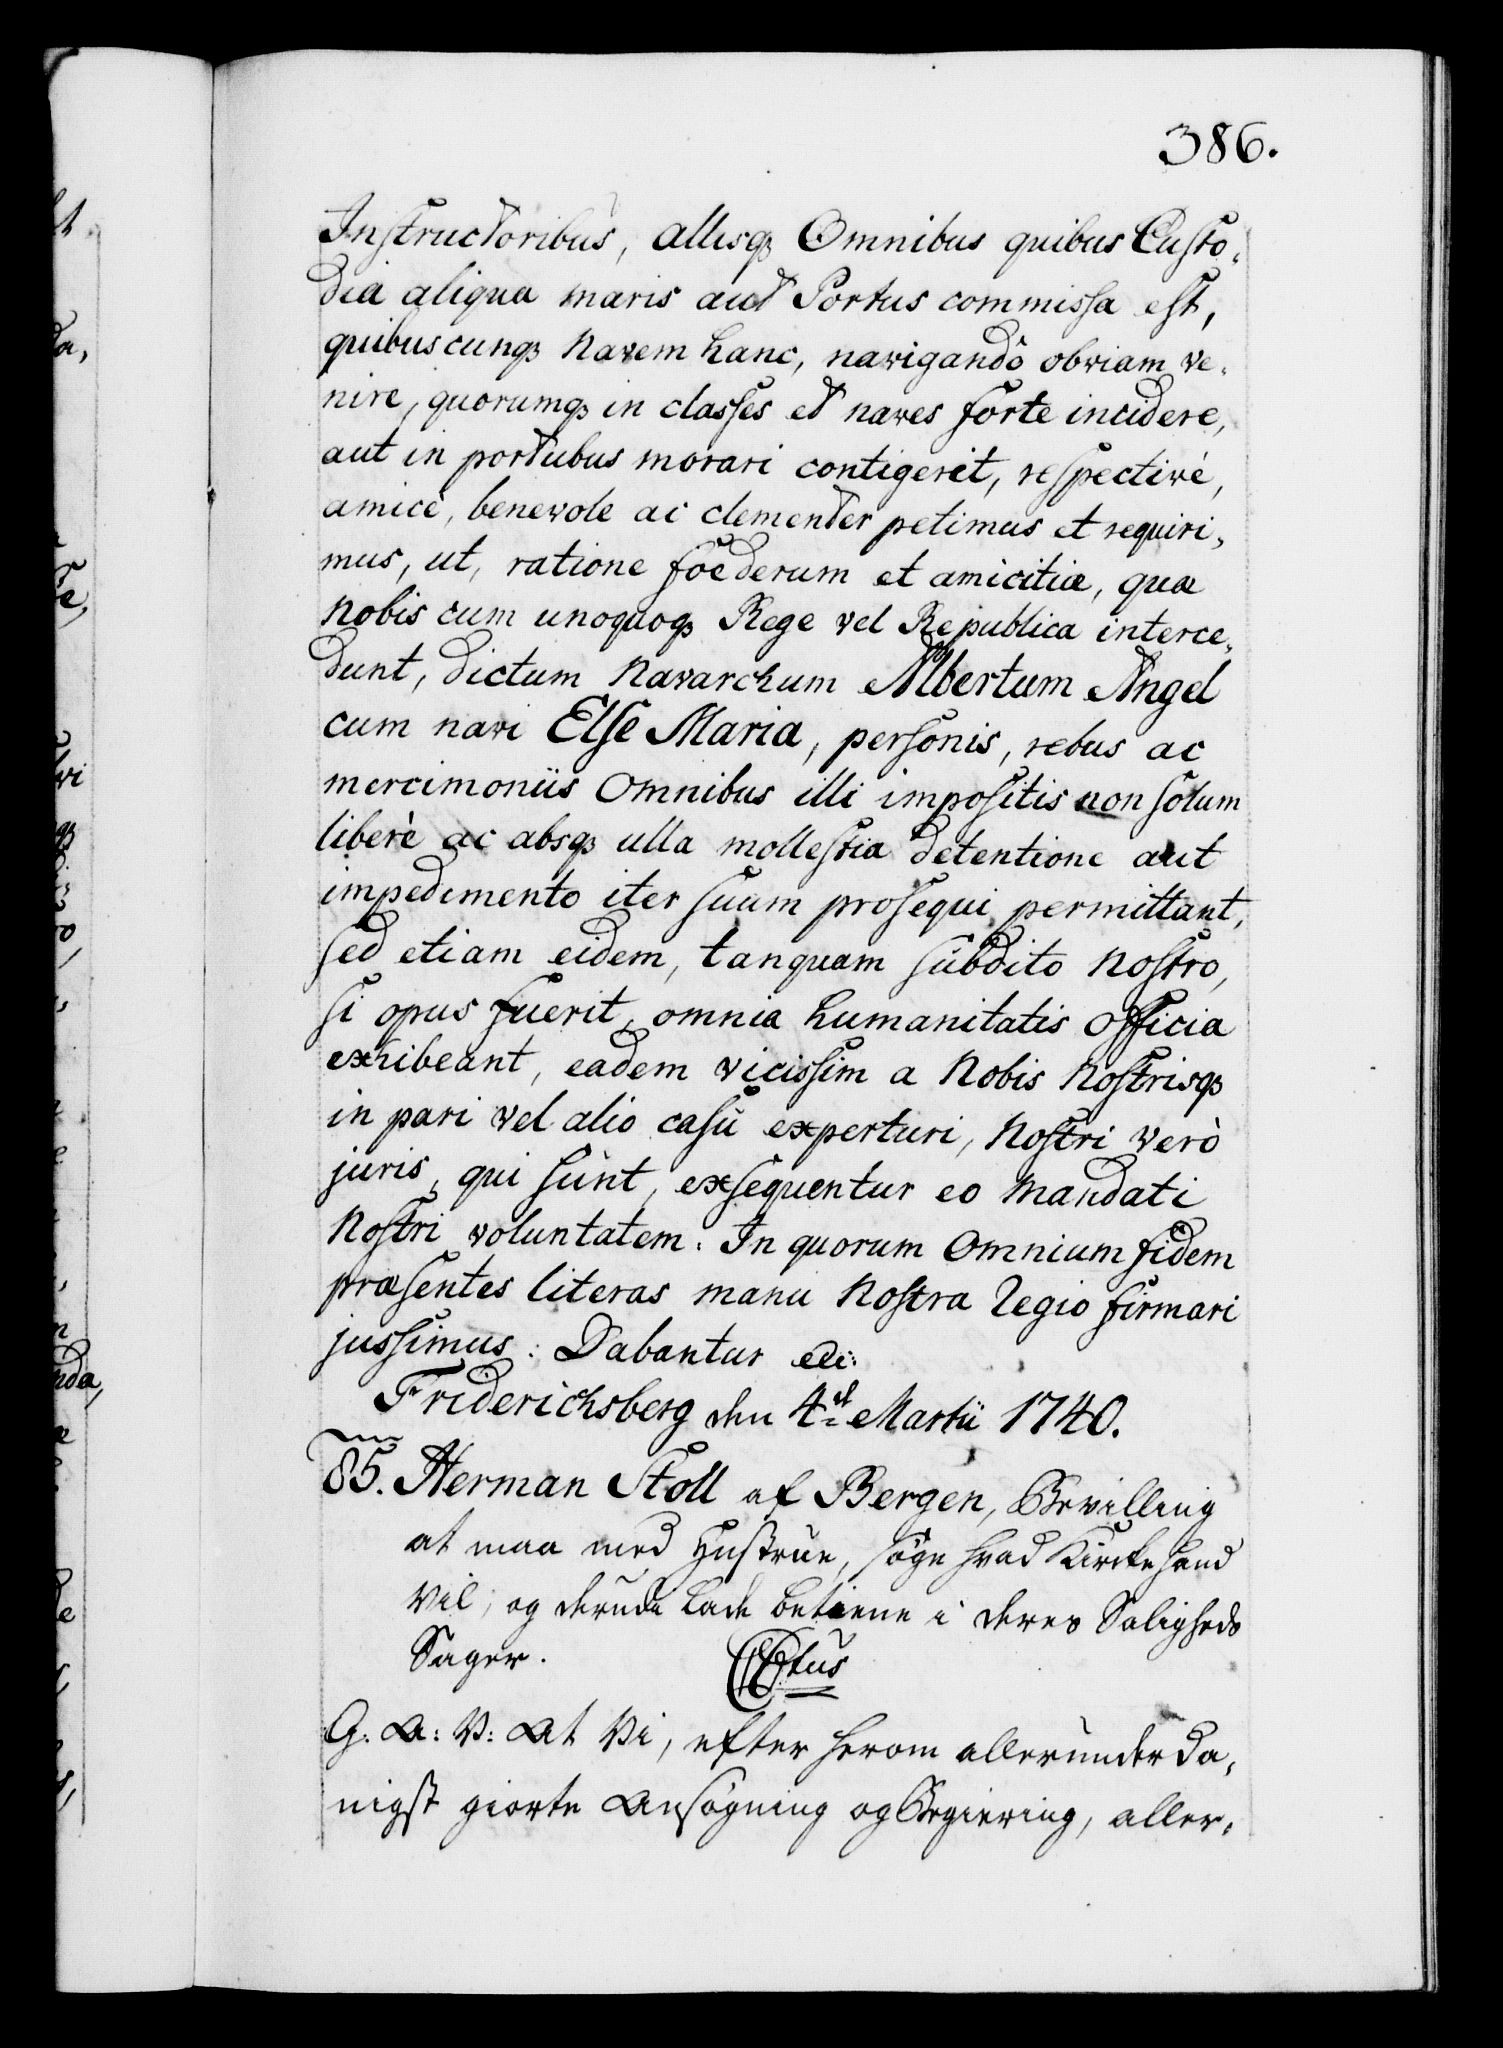 386.
Instructoribus, allisqꝫ Omnibus quibus Custo,
dia aliqua maris aut Portus commissa est,
quibuscunqꝫ Navem hanc, navigandô obviam ve,
nire, quorumqꝫ in classes et naves forte incidere,
aut in portubus morari contigerit, respectivè,
amicè, benevole ac clementer petimus et requiri,
mus, ut, ratione foederum et amicitiæ, quæ
Nobis cum unoquoqꝫ Rege vel Republica interce,
dunt, dictum Navarchum Albertum Angel
cum navi Else Maria, personis, rebus ac
mercimoniis Omnibus illi impositis non solum
liberè ac absqꝫ ulla mollestia detentione aut
impedimento iter suum prosequi permittant,
sed etiam eidem, tanquam subdito Nostro,
si opus fuerit, omnia humanitatis officia
exhibeant, eadem vicissim a Nobis Nostrisqꝫ
in pari vel alio casu experturi, Nostri verò
juris, qui sunt, exsequentur eo Mandati
Nostri voluntatem. In quorum Omnium fidem
præsentes literas manu Nostra Regio firmari
jussimus. Dabantur etc:
Friderichsberg den 4de Martii 1740.
85. Herman Stoll af Bergen, Bevilling
at maa med Hustrue, søge hvad Kircke hand
vil, og derudi lade betiene i deres Saligheds
Sager. C6tus
G: A: V: At Vi, efter herom allerunderda,
nigst giorte Ansøgning og Begiering, aller,